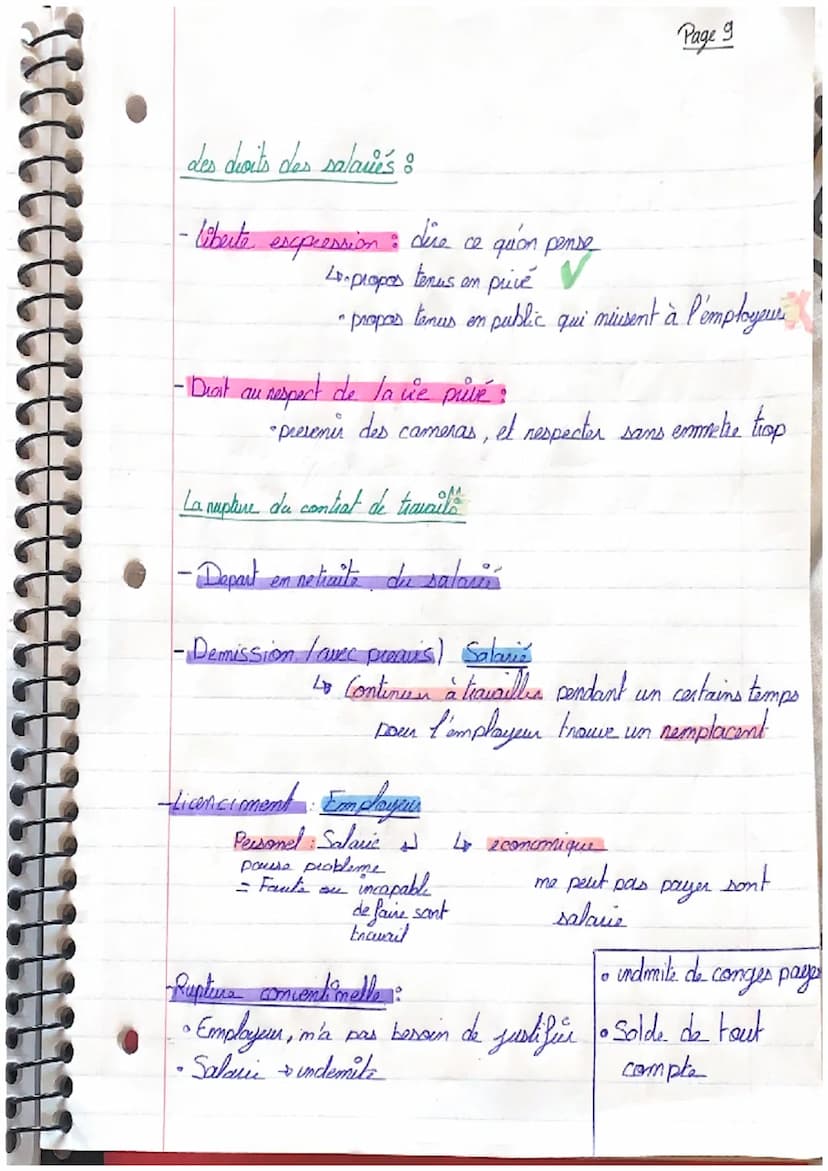 Page 9
des droits des salariés :
- liberte expression : dire ce qu'on pense
↳ • propos tenus en privé ✓
• propos tenus en public qui niusent à l'employeur ✗
- Droit au respect de la vie privé :
• prevenir des cameras, et respecter sans emmetre trop
La rupture du contrat de travail :
- Depart en retraite du salarié
- Demission (avec preavis) Salarié
↳ Continuer à travailler pendant un certains temps
pour l'employeur trouve un remplacent
- Licenciment : Employeur
Personel : Salarie ↲ ↳ economique
pause probleme
= Faute ou incapable
de faire sont
travail
ne peut pas payer sont
salarie
- Rupture conventionelle :
• Employeur, n'a pas besoin de justifier
• Salarie → indemite
• indmite de conges payes
• Solde de tout
compte